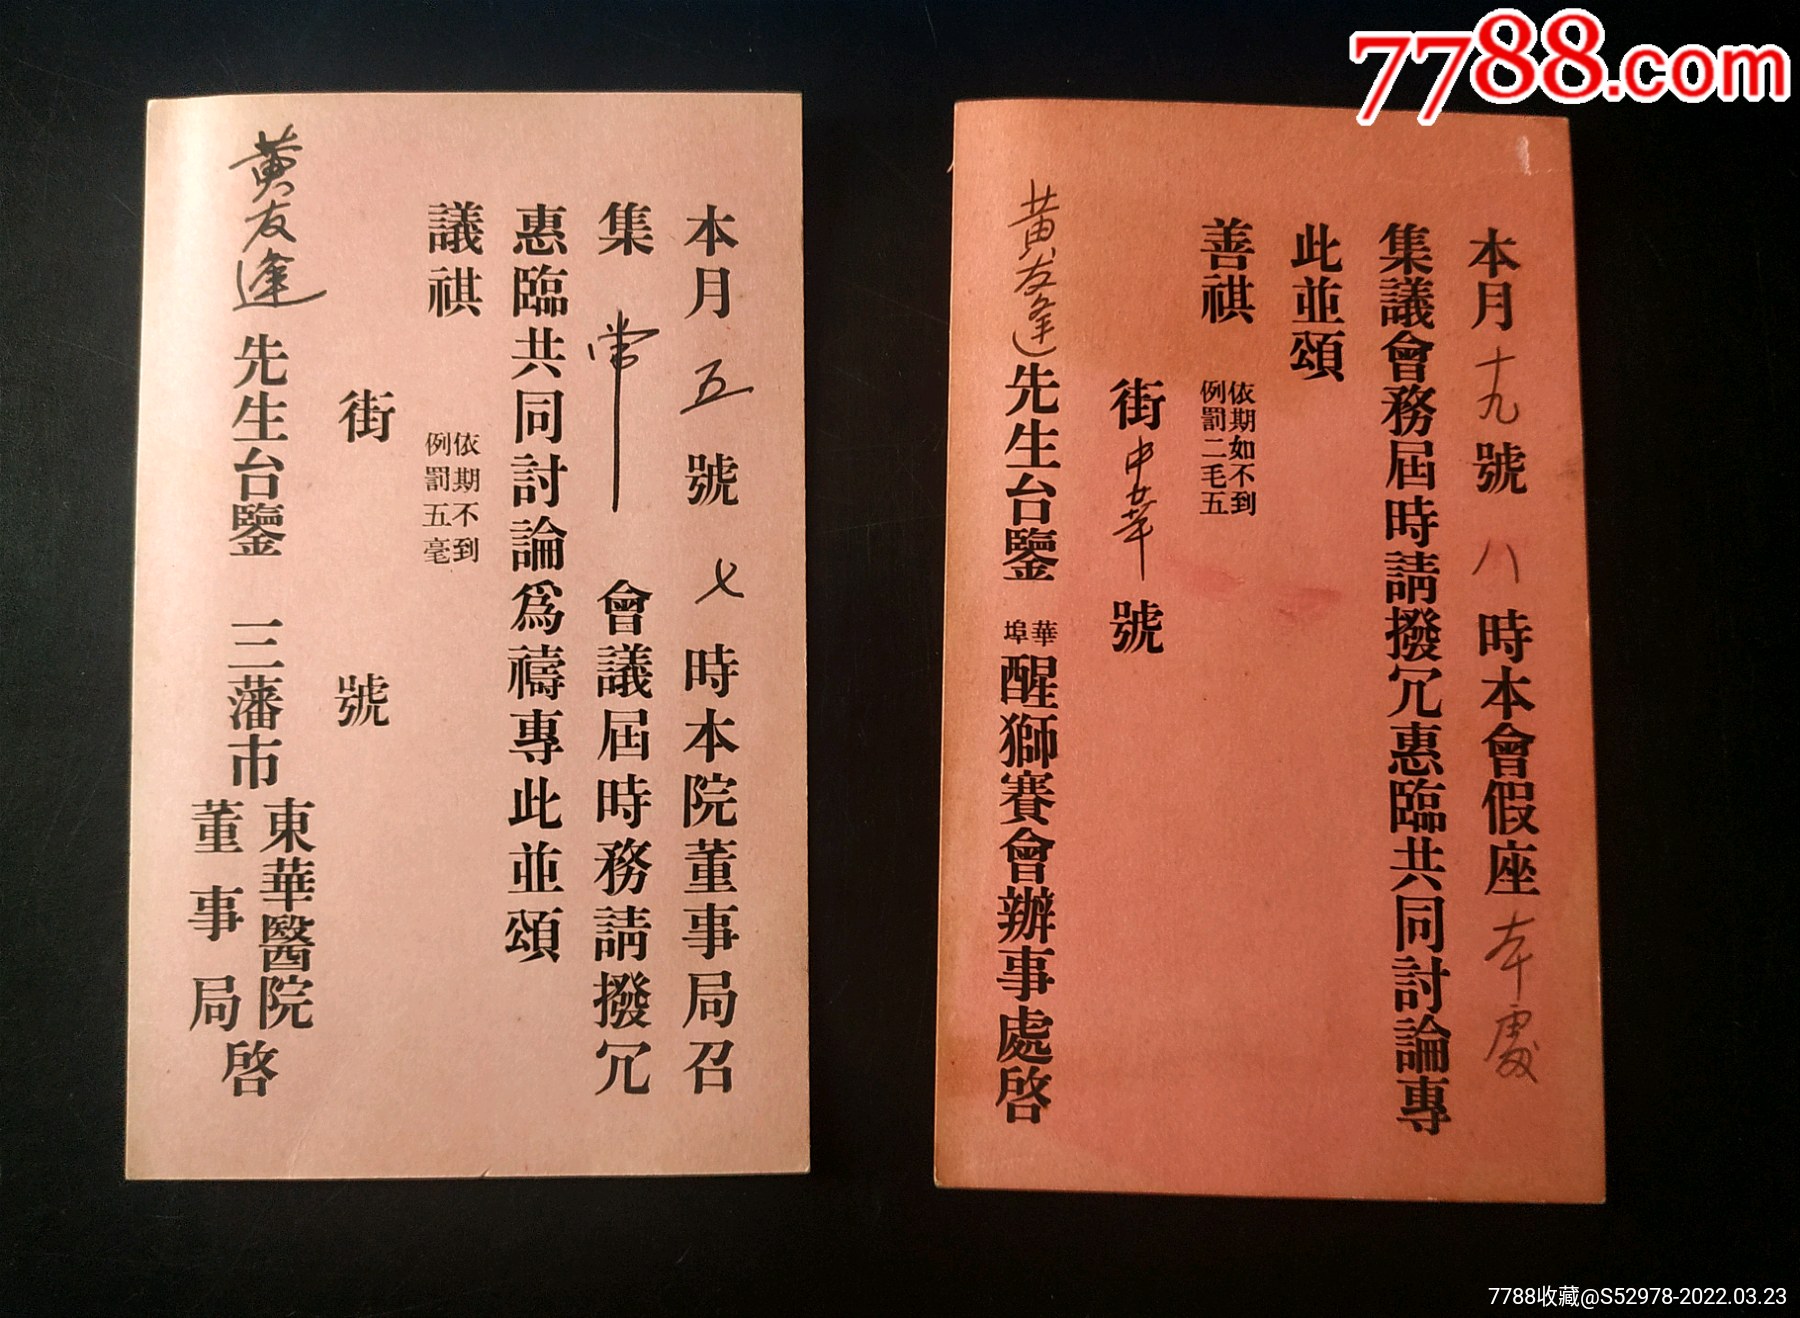 7788.com
本月五號七時本院董事局召
集常會議屆時務請撥冗
惠臨共同討論爲禱專此並頌
議祺
依期不到
例罰五毫
街號
黃友逢先生台鑒
三藩市
東華醫院
董事局
啓
本月十九號八時本會假座本處
集議會務屆時請撥冗惠臨共同討論專
此並頌
善祺
依期如不到
例罰二毛五
街中華號
黃友逢先生台鑒
華
埠
醒獅賽會辦事處啓
7788收藏@S52978-2022.03.23